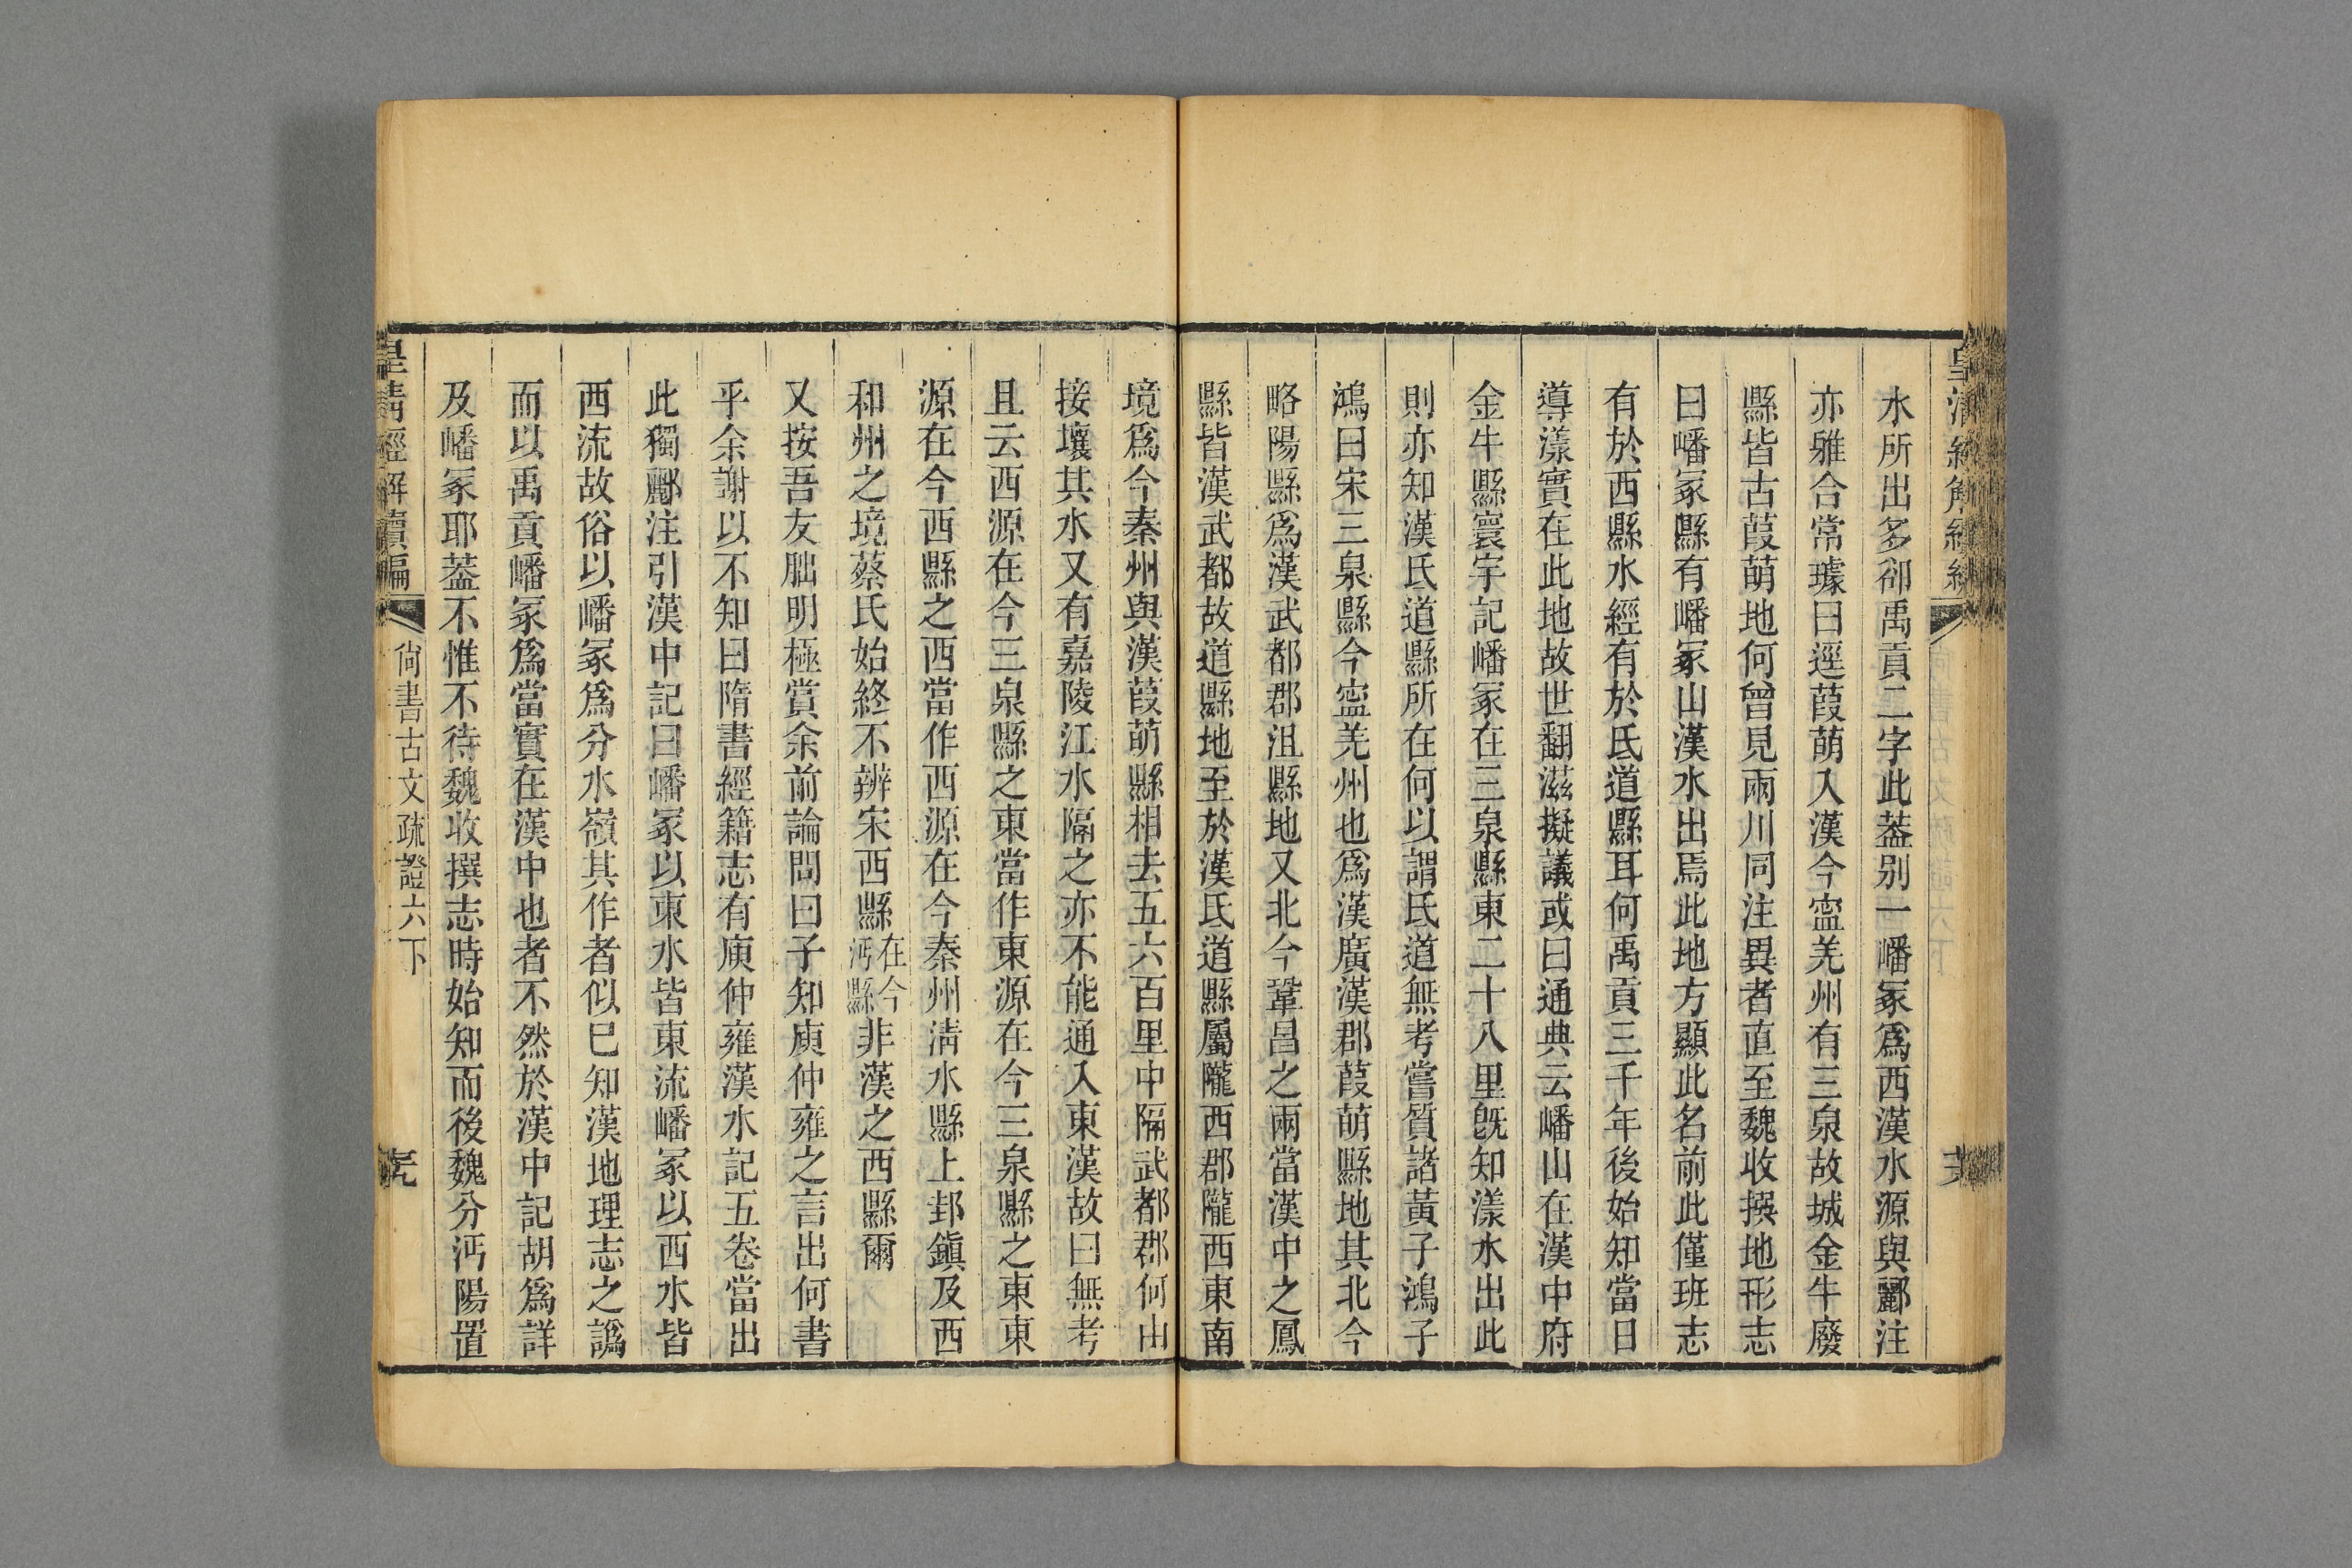 水所出多卻禹貢二字此葢別一嶓冢爲西漢水源與酈注
亦雖合常璩曰逕葭萌入漢今寍羌州有三泉故城金牛廢
縣皆古葭萌地何曾見兩川同注異者直至魏收撰地形志
曰嶓冢縣有嶓冢山漢水出焉此地方顯此名前此僅班志
有於西縣水經有於氐道縣耳何禹貢三千年後始知當日
導漾實在此地故世翻滋擬議或曰通典云嶓山在漢中府
金牛縣寰宇記嶓冢在三泉縣東二十八里旣知漾水出此
則亦知漢氐道縣所在何以謂氐道無考嘗質諸黃子鴻子
鴻曰宋三泉縣今寍羌州也爲漢廣漢郡葭萌縣地其北今
略陽縣爲漢武都郡沮縣地又北今鞏昌之兩當漢中之鳳
縣皆漢武都故道縣地至於漢氐道縣屬隴西郡隴西東南
境爲今秦州與漢葭萌縣相去五六百里中隔武都郡何由
接壤其水又有嘉陵江水隔之亦不能通入東漢故曰無考
且云西源在今三泉縣之東當作東源在今三泉縣之東東
源在今西縣之西當作西源在今秦州淸水縣上邽鎭及西
和州之境蔡氏始終不辨宋西縣在今沔縣非漢之西縣爾
又按吾友朏明極賞余前論問曰子知庾仲雍之言出何書
乎余謝以不知曰隋書經籍志有庾仲雍漢水記五卷當出
此獨酈注引漢中記曰嶓冢以東水皆東流嶓冢以西水皆
西流故俗以嶓冢爲分水嶺其作者似巳知漢地理志之譌
而以禹貢嶓冢爲當實在漢中也者不然於漢中記胡爲詳
及嶓冢耶葢不惟不待魏收撰志時始知而後魏分沔陽置
皇淸經解續編
尙書古文疏證六下